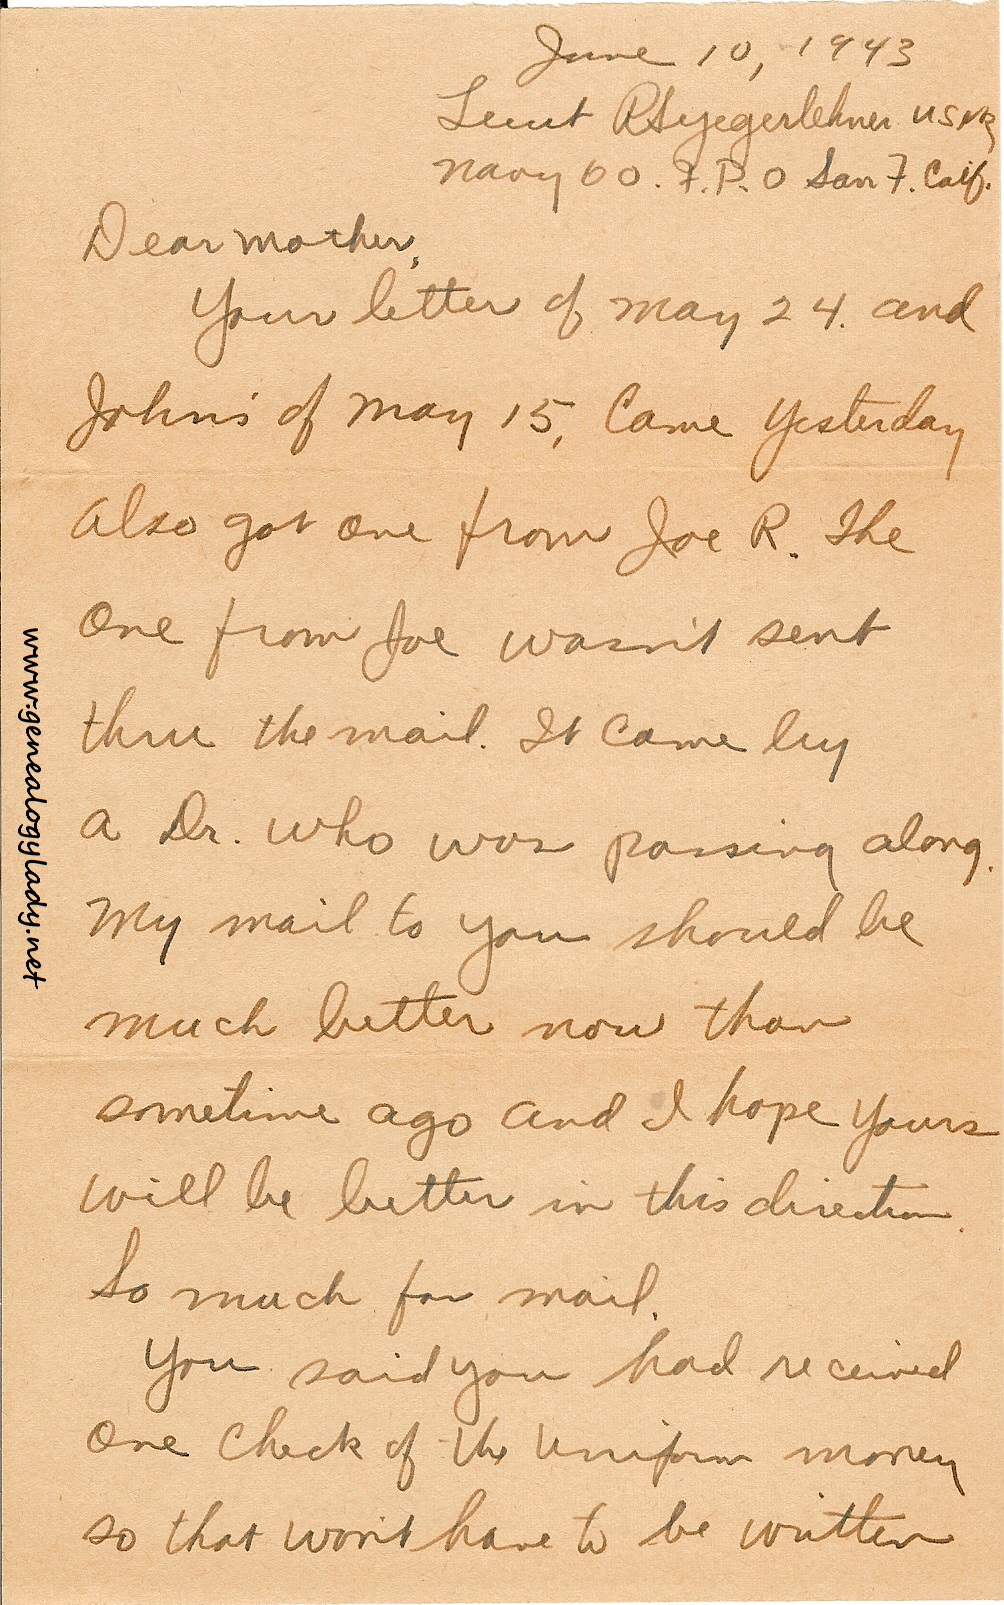 June 10, 1943
Lieut RSYegerlehner USNR
Navy 60. F.P.O San F. Calif.
Dear Mother,
Your letter of May 24. and
John's of May 15, Came Yesterday
Also got one from Joe R. The
One from Joe wasn't sent
thru the mail. It came by
a Dr. who was passing along.
My mail to you should be
much better now than
sometime ago and I hope yours
will be better in this direction.
So much for mail.
You said you had received
One Check of the Uniform money
so that won't have to be written
www.genealogylady.net